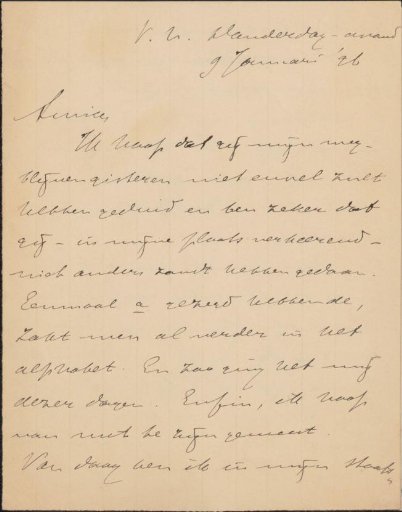 V. N. Donderdag-avond
9 Januari '26
Amice,
Ik hoop dat gij mijn weg-
blijven gisteren niet euvel zult
hebben geduid en ben zeker dat
gij - in mijne plaats verkeerend -
niet anders zoudt hebben gedaan.
Eenmaal a gezegd hebbende,
zakt men al verder in het
alphabet. En zoo ging het mij
dezer dagen. Enfin, ik hoop
van niet te zijn gemeent.
Van daag ben ik in mijn